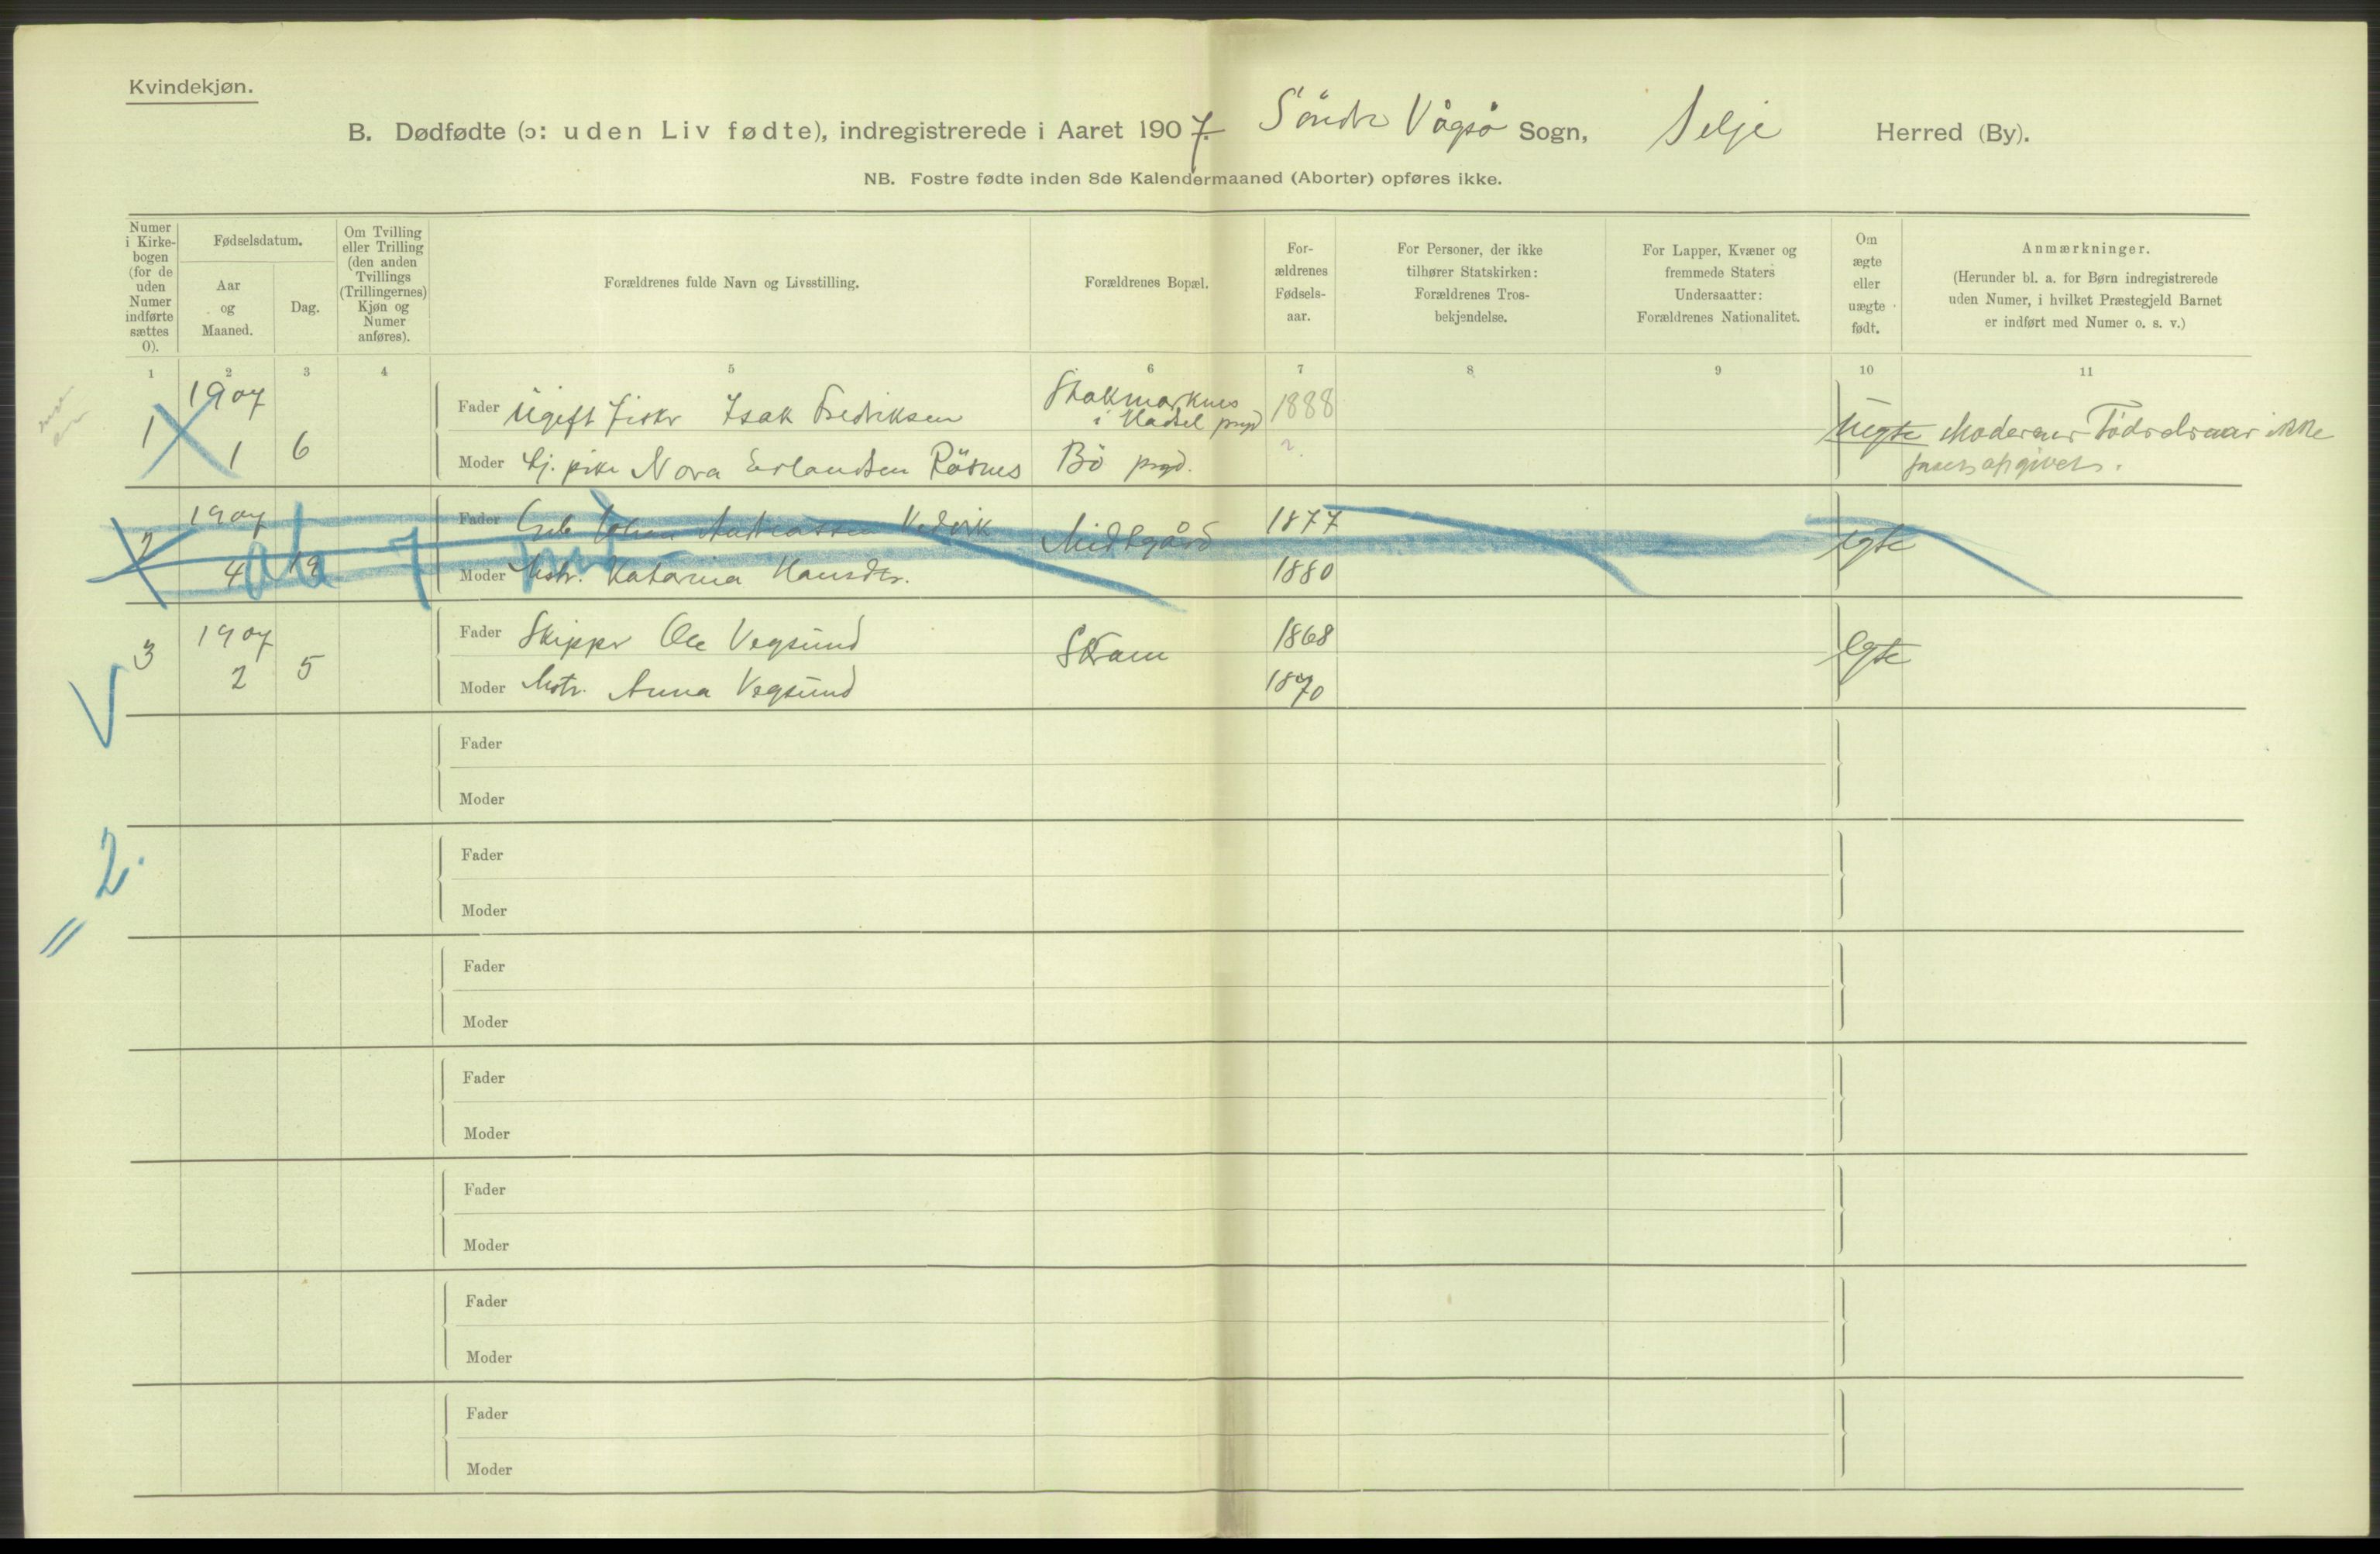 Kvindekjøn.
B. Dødfødte (ɔ: uden Liv fødte), indregistrerede i Aaret 1907. Söndre Vågsö Sogn, Selje Herred (By).
NB. Fostre fødte inden 8de Kalendermaaned (Aborter) opføres ikke.
Numer
i Kirke-
bogen
(for de
uden
Numer
indførte
sættes
0).
Fødselsdatum.
Aar
og
Maaned.
Dag.
Om Tvilling
eller Trilling
(den anden
Tvillings
(Trillingernes)
Kjøn og
Numer
anføres).
Forældrenes fulde Navn og Livsstilling.
Forældrenes Bopæl.
For-
ældrenes
Fødsels-
aar.
For Personer, der ikke
tilhører Statskirken:
Forældrenes Tros-
bekjendelse.
For Lapper, Kvæner og
fremmede Staters
Undersaatter:
Forældrenes Nationalitet.
Om
ægte
eller
uægte
født.
Anmærkninger.
(Herunder bl. a. for Børn indregistrerede
uden Numer, i hvilket Præstegjeld Barnet
er indført med Numer o. s. v.)
1 2 3 4 5 6 7 8 9 10 11
1 1907 1 6
Fader Ugift fisker Isak Fredriksen Stokmarknes i Hadsel prgd 1888
Moder tj. pike Nora Erlandsen Rösnes Bö prgd. ?.
Uegte Moderens Födselsaar ikke
opgivet.
2 1907 4 19
Fader Johan Andreassen Vedvik Midtgård 1877
Moder Hstr. Katarina Hansdtr. 1880
egte
3 1907 2 5
Fader Skipper Ole Vegsund Skram 1868
Moder Hstr. Anna Vegsund 1870
Egte
Fader
Moder
2.
Fader
Moder
Fader
Moder
Fader
Moder
Fader
Moder
Fader
Moder
Fader
Moder